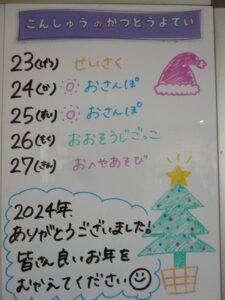 こんしゅうのかつどうよてい
23(げつ) せいさく
24(か) おさんぽ
25(すい) おさんぽ
26(もく) おおそうじごっこ
27(きん) おへやあそび
2024年、
ありがとうございました!
皆さん良いお年を
おむかえてください